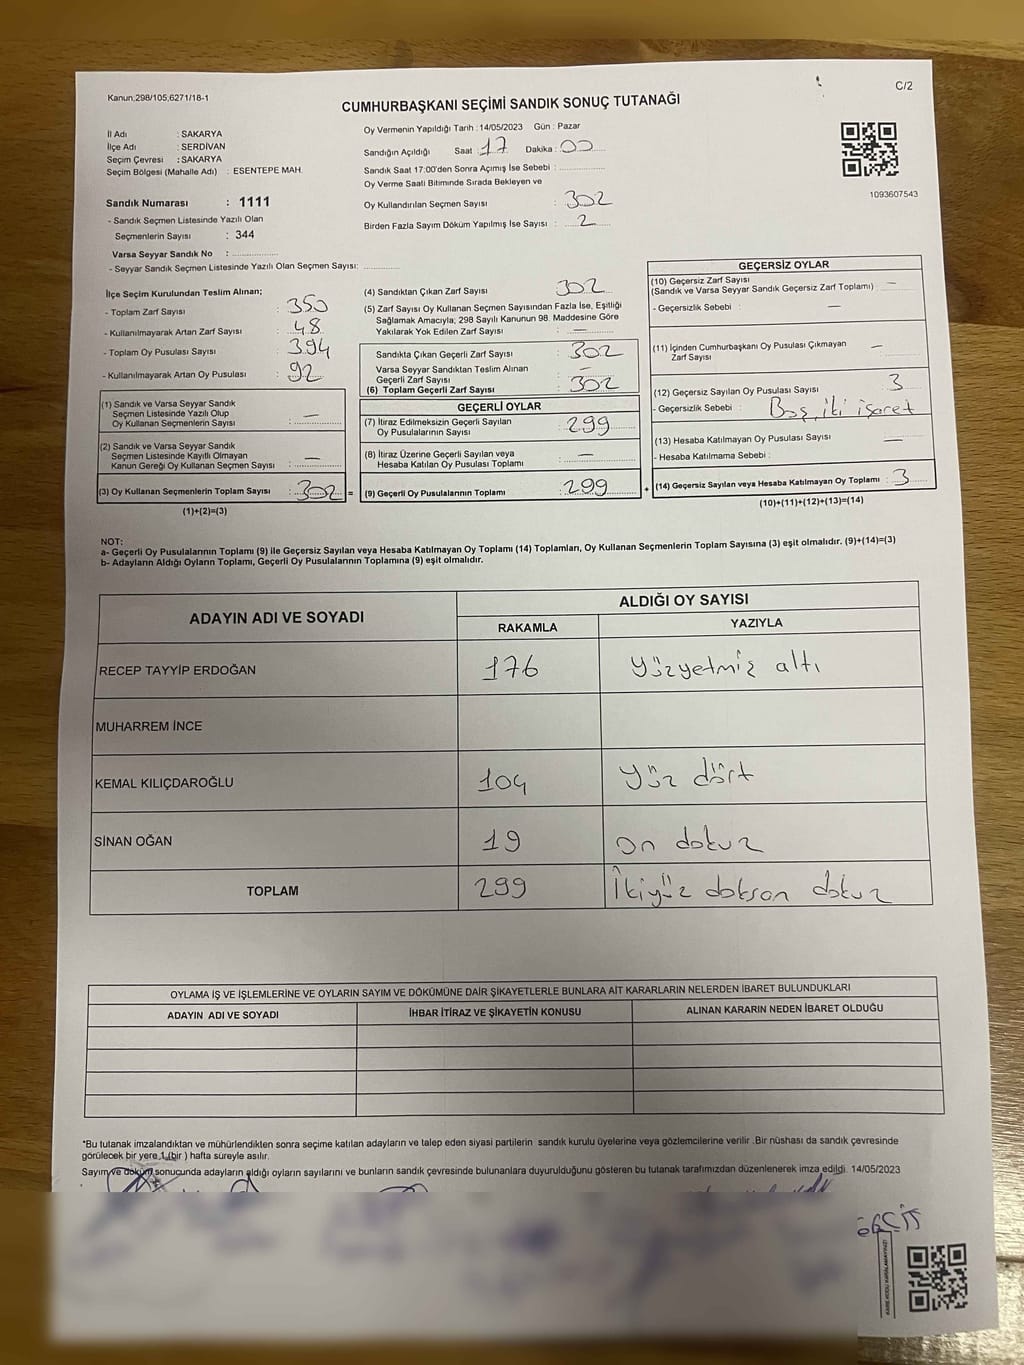 Kanun;298/105;6271/18-1
C/2
CUMHURBAŞKANI SEÇİMİ SANDIK SONUÇ TUTANAĞI
İl Adı : SAKARYA
İlçe Adı : SERDİVAN
Seçim Çevresi : SAKARYA
Seçim Bölgesi (Mahalle Adı) : ESENTEPE MAH.
Oy Vermenin Yapıldığı Tarih : 14/05/2023 Gün : Pazar
Sandığın Açıldığı Saat : 17 Dakika : 00
Sandık Saat 17:00'den Sonra Açımış İse Sebebi :
Oy Verme Saati Bitiminde Sırada Bekleyen ve
Oy Kullandırılan Seçmen Sayısı : 302
Birden Fazla Sayım Döküm Yapılmış İse Sayısı : 2
1093607543
Sandık Numarası : 1111
- Sandık Seçmen Listesinde Yazılı Olan
Seçmenlerin Sayısı : 344
Varsa Seyyar Sandık No :
- Seyyar Sandık Seçmen Listesinde Yazılı Olan Seçmen Sayısı:
İlçe Seçim Kurulundan Teslim Alınan;
- Toplam Zarf Sayısı : 350
- Kullanılmayarak Artan Zarf Sayısı : 48
- Toplam Oy Pusulası Sayısı : 394
- Kullanılmayarak Artan Oy Pusulası : 92
(1) Sandık ve Varsa Seyyar Sandık
Seçmen Listesinde Yazılı Olup
Oy Kullanan Seçmenlerin Sayısı : —
(2) Sandık ve Varsa Seyyar Sandık
Seçmen Listesinde Kayıtlı Olmayan
Kanun Gereği Oy Kullanan Seçmen Sayısı : —
(3) Oy Kullanan Seçmenlerin Toplam Sayısı : 302 =
(1)+(2)=(3)
(4) Sandıktan Çıkan Zarf Sayısı : 302
(5) Zarf Sayısı Oy Kullanan Seçmen Sayısından Fazla İse, Eşitliği
Sağlamak Amacıyla; 298 Sayılı Kanunun 98. Maddesine Göre
Yakılarak Yok Edilen Zarf Sayısı : —
Sandıkta Çıkan Geçerli Zarf Sayısı : 302
Varsa Seyyar Sandıktan Teslim Alınan
Geçerli Zarf Sayısı : —
(6) Toplam Geçerli Zarf Sayısı : 302
GEÇERLİ OYLAR
(7) İtiraz Edilmeksizin Geçerli Sayılan
Oy Pusulalarının Sayısı : 299
(8) İtiraz Üzerine Geçerli Sayılan veya
Hesaba Katılan Oy Pusulası Toplamı : —
(9) Geçerli Oy Pusulalarının Toplamı : 299 +
GEÇERSİZ OYLAR
(10) Geçersiz Zarf Sayısı
(Sandık ve Varsa Seyyar Sandık Geçersiz Zarf Toplamı) : —
- Geçersizlik Sebebi : —
(11) İçinden Cumhurbaşkanı Oy Pusulası Çıkmayan
Zarf Sayısı : —
(12) Geçersiz Sayılan Oy Pusulası Sayısı : 3
- Geçersizlik Sebebi : Boş, iki işaret
(13) Hesaba Katılmayan Oy Pusulası Sayısı : —
- Hesaba Katılmama Sebebi :
(14) Geçersiz Sayılan veya Hesaba Katılmayan Oy Toplamı : 3
(10)+(11)+(12)+(13)=(14)
NOT:
a- Geçerli Oy Pusulalarının Toplamı (9) ile Geçersiz Sayılan veya Hesaba Katılmayan Oy Toplamı (14) Toplamları, Oy Kullanan Seçmenlerin Toplam Sayısına (3) eşit olmalıdır. (9)+(14)=(3)
b- Adayların Aldığı Oyların Toplamı, Geçerli Oy Pusulalarının Toplamına (9) eşit olmalıdır.
ADAYIN ADI VE SOYADI
ALDIĞI OY SAYISI
RAKAMLA YAZIYLA
RECEP TAYYİP ERDOĞAN 176 Yüzyetmiş altı
MUHARREM İNCE
KEMAL KILIÇDAROĞLU 104 Yüz dört
SİNAN OĞAN 19 on dokuz
TOPLAM 299 İkiyüz doksan dokuz
OYLAMA İŞ VE İŞLEMLERİNE VE OYLARIN SAYIM VE DÖKÜMÜNE DAİR ŞİKAYETLERLE BUNLARA AİT KARARLARIN NELERDEN İBARET BULUNDUKLARI
ADAYIN ADI VE SOYADI İHBAR İTİRAZ VE ŞİKAYETİN KONUSU ALINAN KARARIN NEDEN İBARET OLDUĞU
*Bu tutanak imzalandıktan ve mühürlendikten sonra seçime katılan adayların ve talep eden siyasi partilerin sandık kurulu üyelerine veya gözlemcilerine verilir .Bir nüshası da sandık çevresinde
görülecek bir yere 1 (bir ) hafta süreyle asılır.
Sayım ve döküm sonucunda adayların aldığı oyların sayılarını ve bunların sandık çevresinde bulunanlara duyurulduğunu gösteren bu tutanak tarafımızdan düzenlenerek imza edildi. 14/05/2023